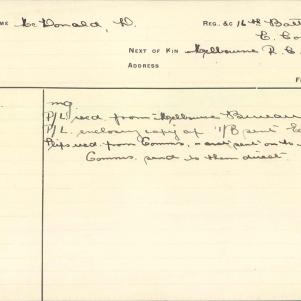 ME McDonald, D. REG. &C 16th Batt
C. Co
NEXT OF KIN Melbourne R. C.
ADDRESS
F
mg
P/L recd. from Melbourne Bureau
P/L. enclosing copy of "I/B sent"
Slips recd. from Comms. - and sent on to
Comms. send to them direct